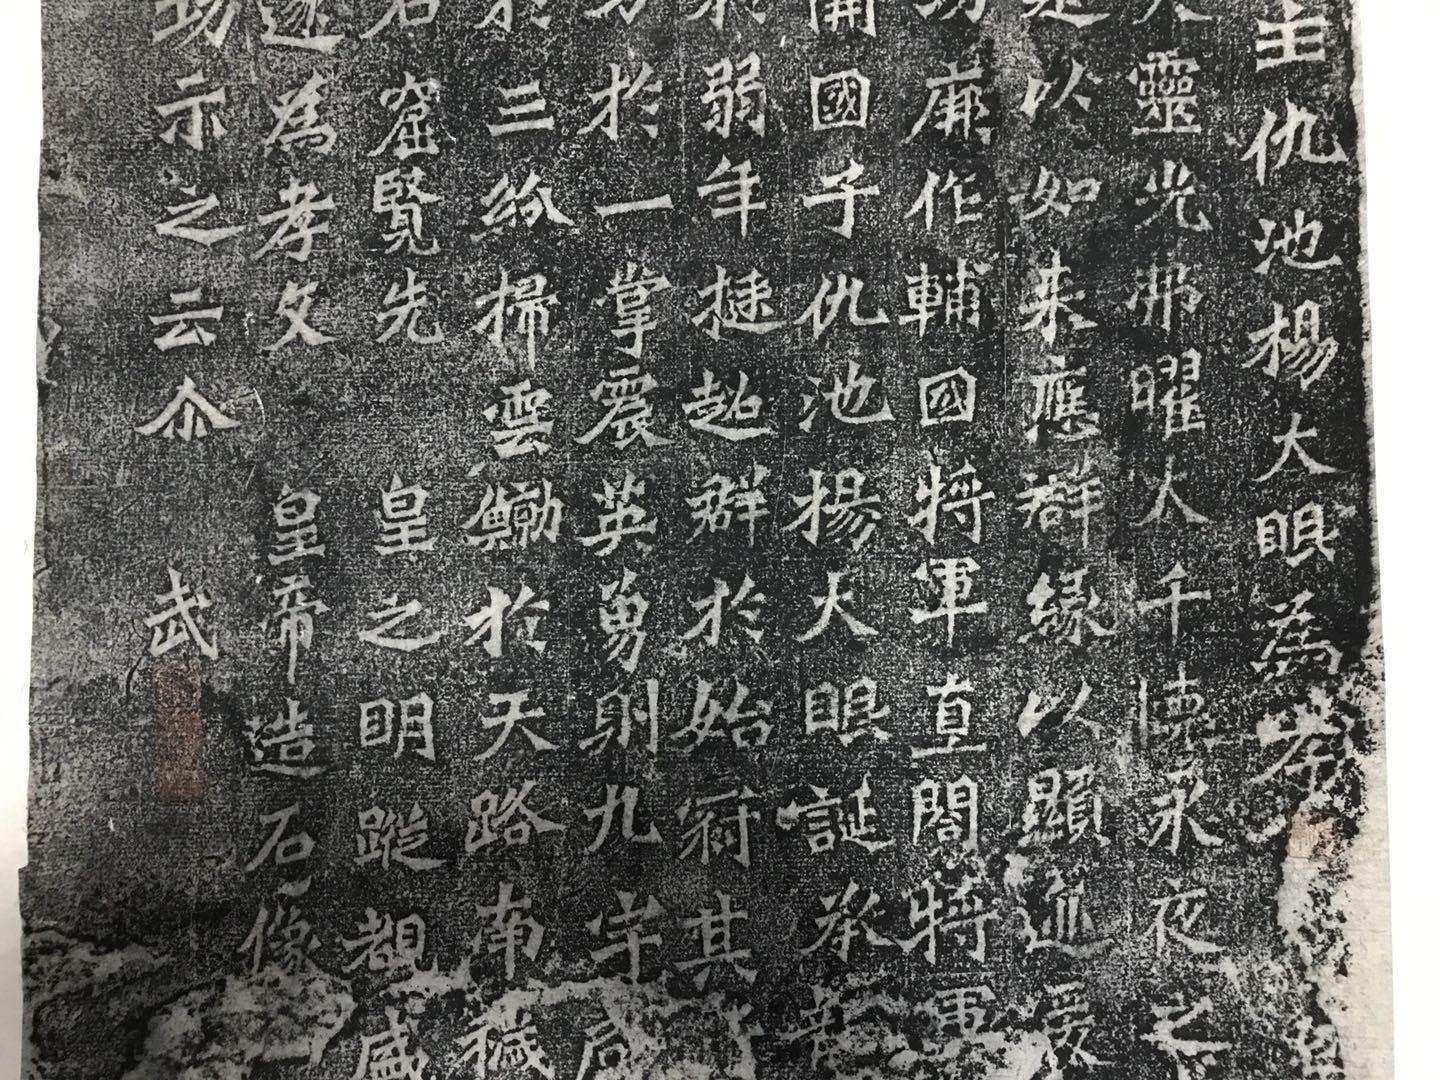 主仇池楊大眼為孝
靈光弗曜大千懐永夜之
是以如來應群緣以顯迹爰
功廉作輔國將軍直閤將軍
開國子仇池楊大眼誕承龍
於弱年挺超群於始冠其
才於一掌震英勇則九宇咸
於三紛掃雲鯨於天路南穢
石窟覽先皇之明蹤覩盛
遂為孝文皇帝造石像一
功示之云尒武